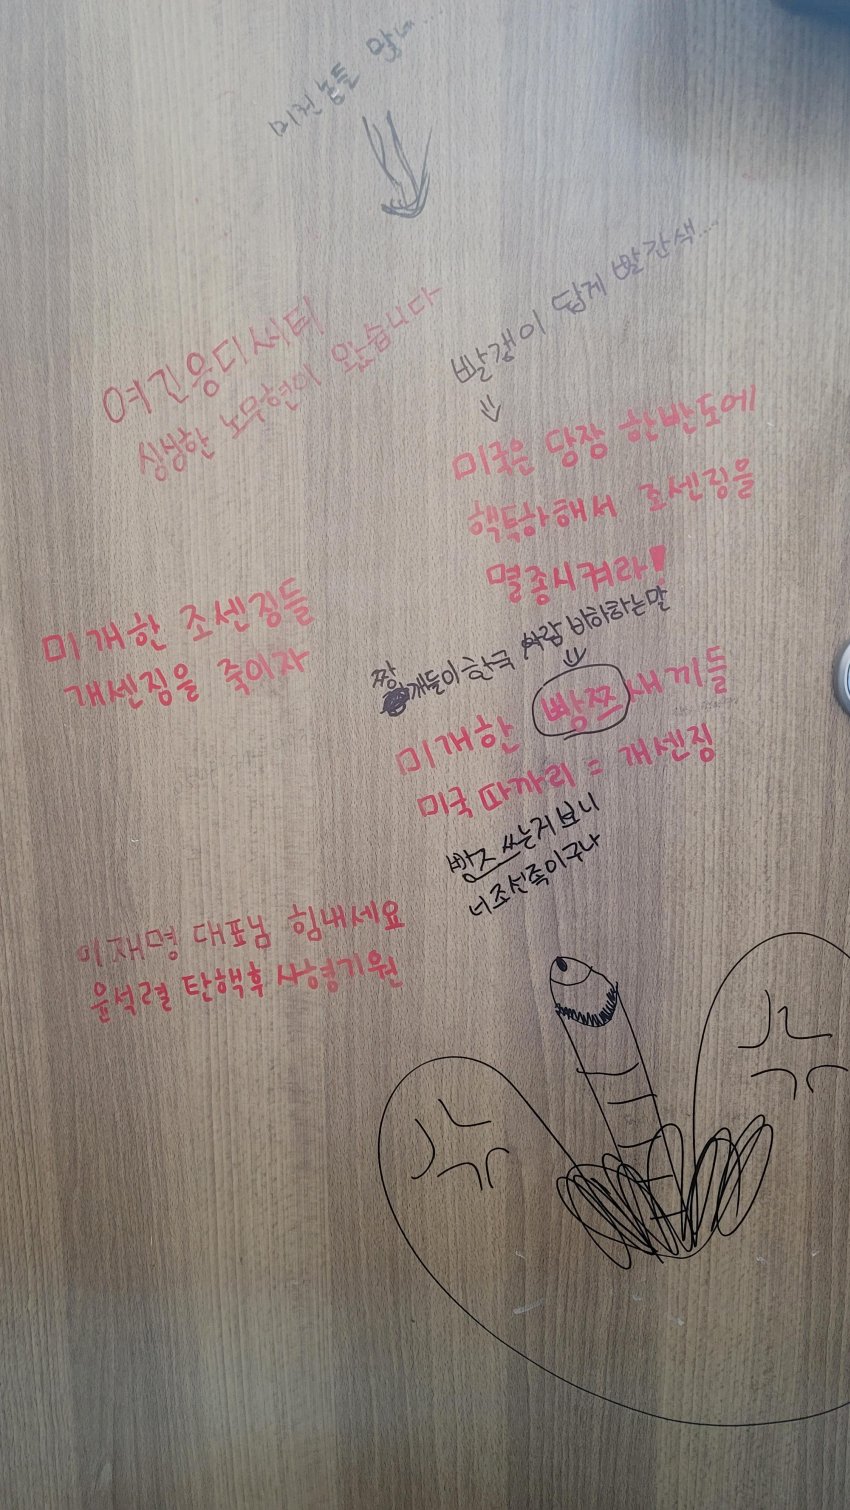 미친놈들 많네...
빨갱이 답게 빨간색...
여긴응디씨티
싱싱한 노무현이 왔습니다
미국은 당장 한반도에
핵투하해서 조센징을
멸종시켜라!
미개한 조센징들
개센징을 죽이자
짱깨들이 한국 사람 비하하는말
미개한 빵쯔 새끼들
미국 따까리 = 개센징
빵즈 쓰는거 보니
너조선족이구나
이재명 대표님 힘내세요
윤석렬 탄핵후 사형기원